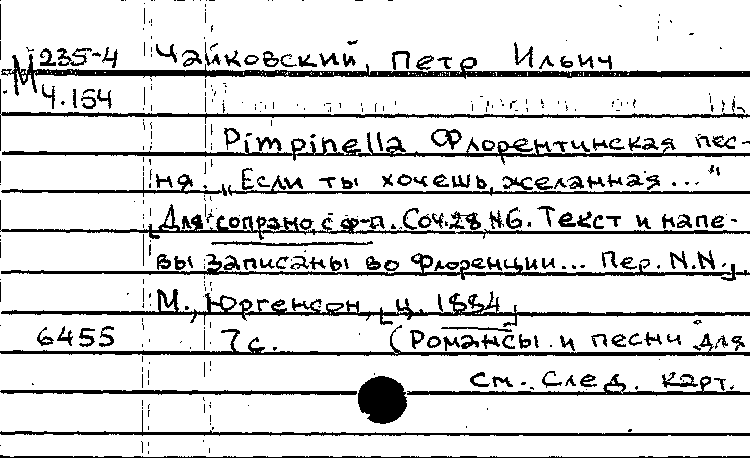 М 235-4 Чайковский, Петр Ильич
4.164
Pimpinella. Флорентинская пес-
ня. „Если ты хочешь, желанная..."
[Для сопрано с ф-п. Соч.28, №6. Текст и напе-
вы записаны во Флоренции... Пер. N.N.]
М., Юргенсон, [ц. 1884]
6455 7с. (Романсы и песни для
См. след. карт.